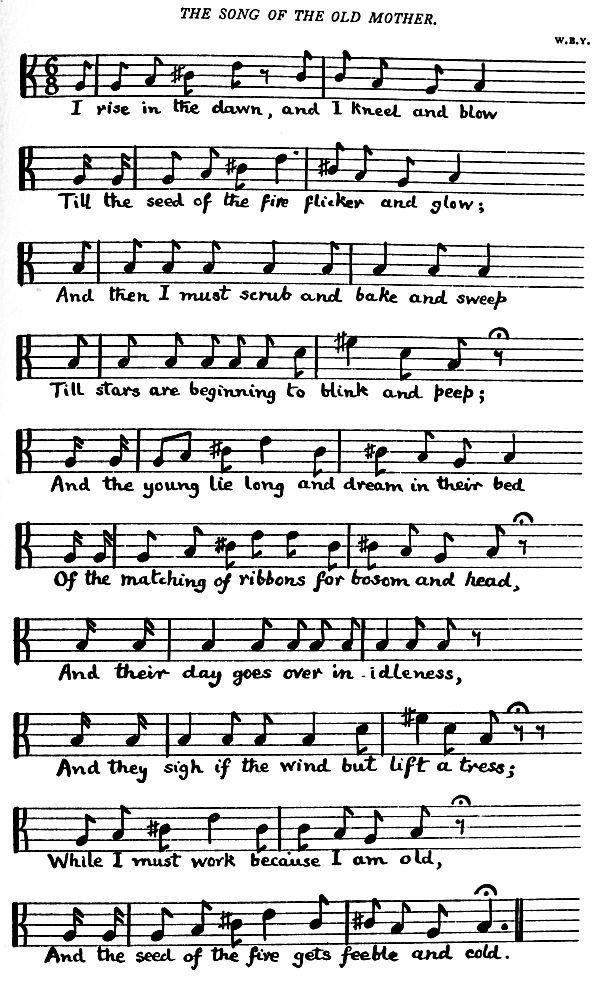 THE SONG OF THE OLD MOTHER.
W.B.Y.
6
8
I rise in the dawn, and I kneel and blow
Till the seed of the fire flicker and glow;
And then I must scrub and bake and sweep
Till stars are beginning to blink and peep;
And the young lie long and dream in their bed
Of the matching of ribbons for bosom and head,
And their day goes over in idleness,
And they sigh if the wind but lift a tress;
While I must work because I am old,
And the seed of the fire gets feeble and cold.